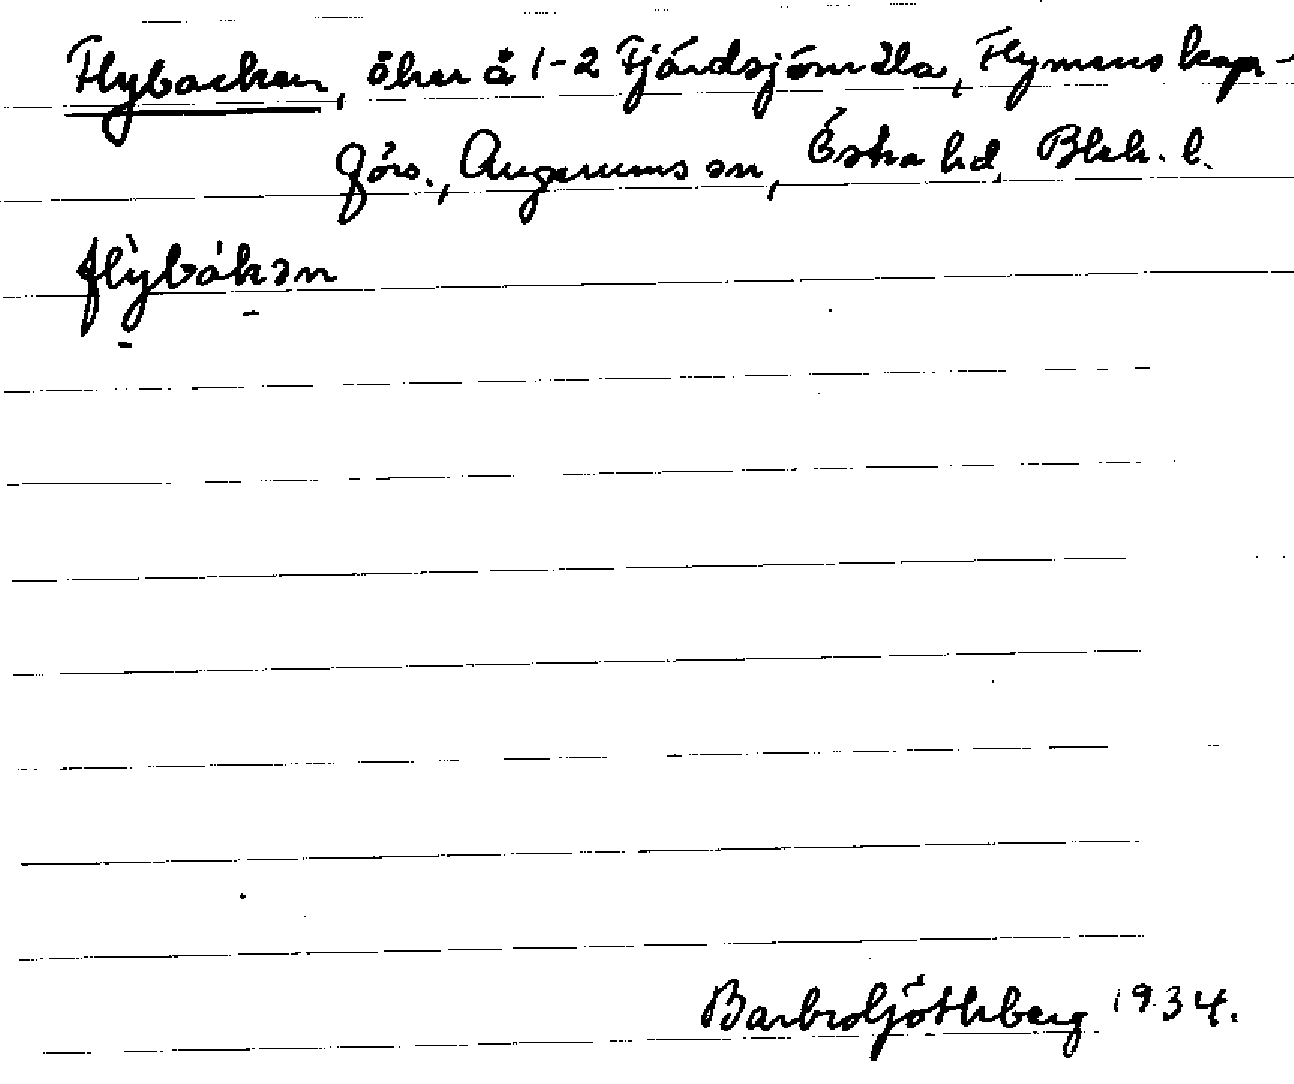 Flybacken, åker å 1-2 Fjärdsjömåla, Flymens kap-
förs., Augerums sn, Östra hd, Blek. l.
flỳbákən
Barbro Göthberg 1934.